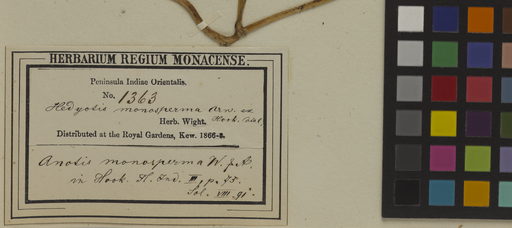 HERBARIUM REGIUM MONACENSE.
Peninsula Indiae Orientalis.
No. 1363
Hedyotis monosperma Arn. ex
Herb. Wight. Hook. Cat.
Distributed at the Royal Gardens, Kew. 1866-8.
Anotis monosperma W. & A.
in Hook. Fl. Ind. III, p. 75.
VIII. 91.